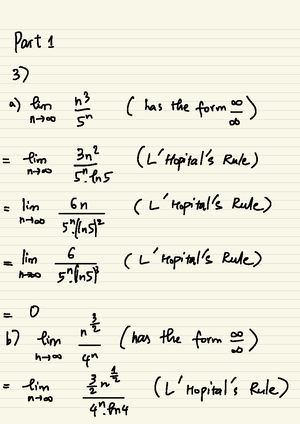 Part 1
3)
a) lim n→∞ n³/5ⁿ (has the form ∞/∞)
= lim n→∞ 3n²/5ⁿ.ln5 (L'Hopital's Rule)
= lim n→∞ 6n/5ⁿ.(ln5)² (L'Hopital's Rule)
= lim n→∞ 6/5ⁿ.(ln5)³ (L'Hopital's Rule)
= 0
b) lim n→∞ n^(3/2)/4ⁿ (has the form ∞/∞)
= lim n→∞ 3/2 n^(1/2)/4ⁿ.ln4 (L'Hopital's Rule)